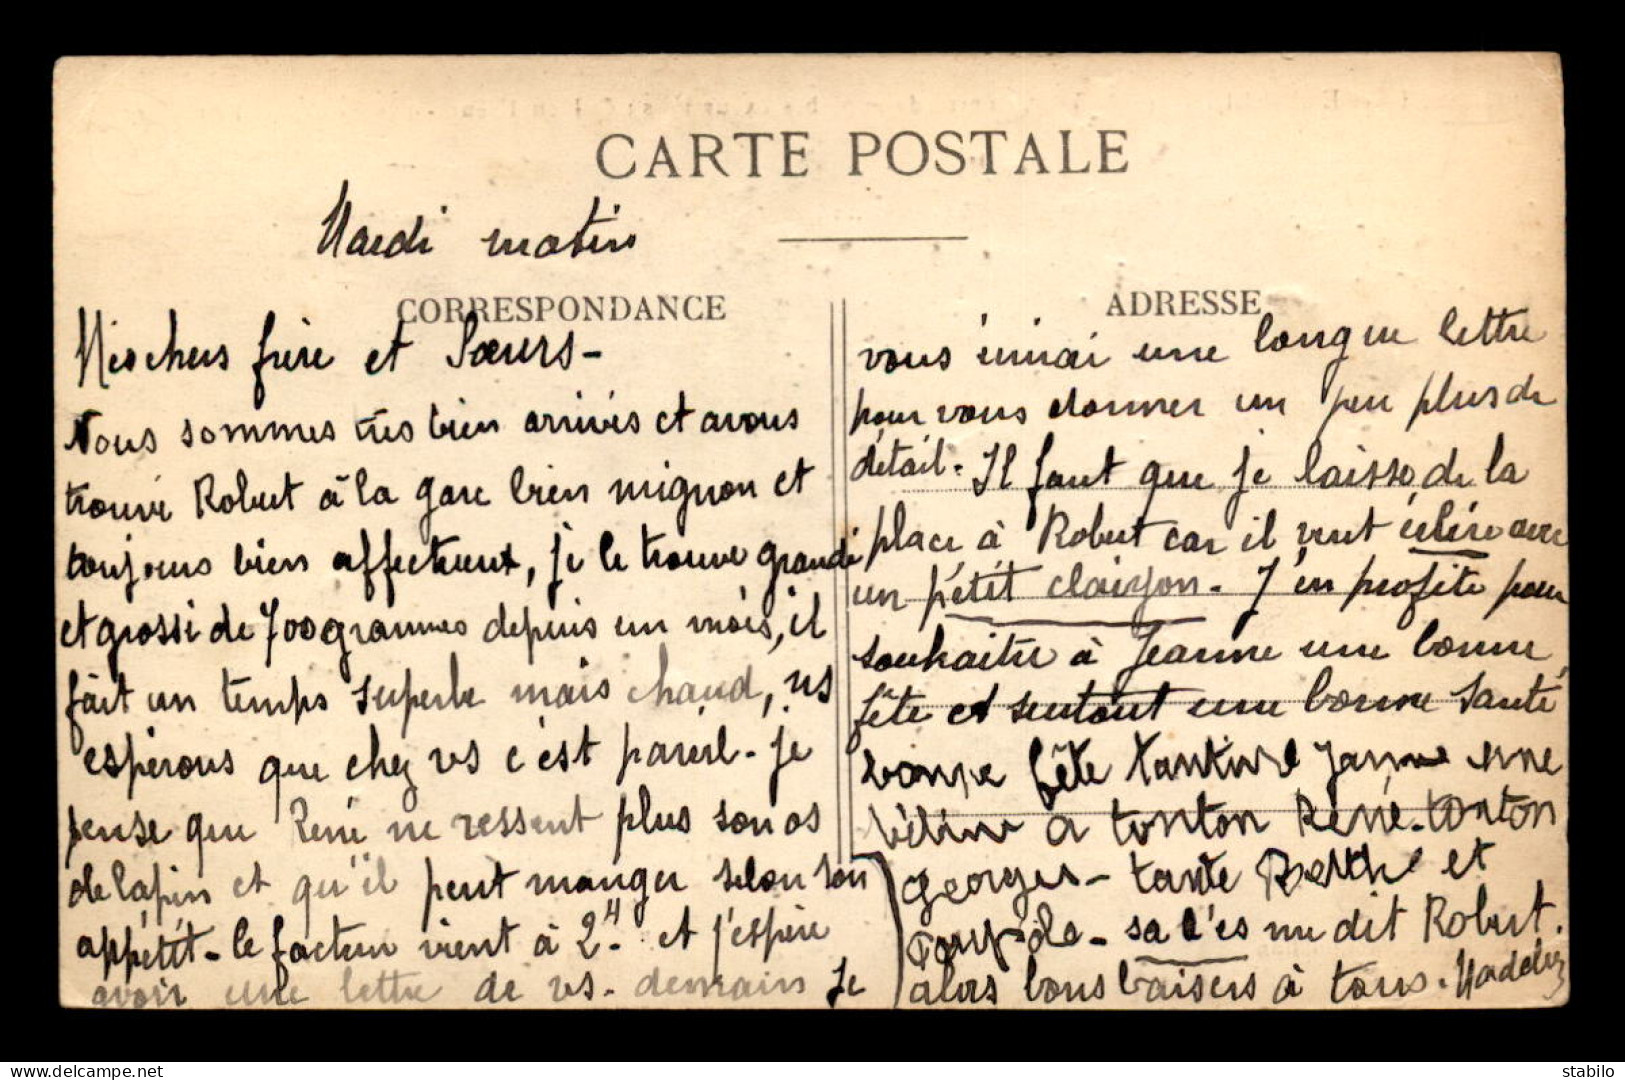 CARTE POSTALE
Mardi matin
CORRESPONDANCE
Mes chers frère et Sœurs -
Nous sommes très bien arrivés et avons
trouvé Robert à la gare bien mignon et
toujours bien affectueux, je le trouve grandi
et grossi de 700 grammes depuis un mois, il
fait un temps superbe mais chaud, ns
espérons que chez vs c'est pareil - je
pense que René ne ressent plus son os
de lapin et qu'il peut manger selon son
appétit - le facteur vient à 2H et j'espère
avoir une lettre de vs - demain Je
ADRESSE
vous écrirai une longue lettre
pour vous donner un peu plus de
détail - Il faut que je laisse de la
place à Robert car il veut écrire avec
un petit claiyon - J'en profite pour
souhaiter à Jeanne une bonne
fête et surtout une bonne santé
bonne fête tantine Janne une
à tonton René - tonton
Georges - tante Berthe et
sa l'es me dit Robert.
alors bons baisers à tous - Madelein
stabilo
https://www.delcampe.net